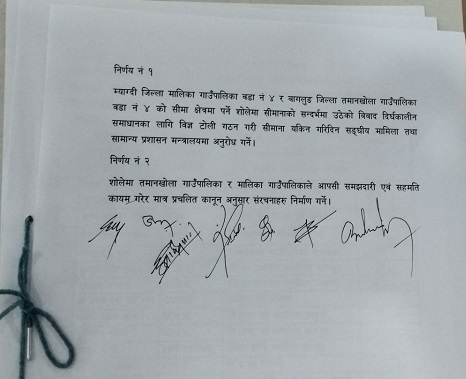 निर्णय नं १
म्याग्दी जिल्ला मालिका गाउँपालिका वडा नं ४ र बागलुङ जिल्ला तमानखोला गाउँपालिका
वडा नं ४ को सीमा क्षेत्रमा पर्ने शोलेमा सीमानाको सन्दर्भमा उठेको विवाद दिर्घकालीन
समाधानका लागि विज्ञ टोली गठन गरी सीमाना यकिन गरिदिन सङ्घीय मामिला तथा
सामान्य प्रशासन मन्त्रालयमा अनुरोध गर्ने।
निर्णय नं २
शोलेमा तमानखोला गाउँपालिका र मालिका गाउँपालिकाले आपसी समझदारी एवं सहमति
कायम गरेर मात्र प्रचलित कानून अनुसार संरचनाहरु निर्माण गर्ने।